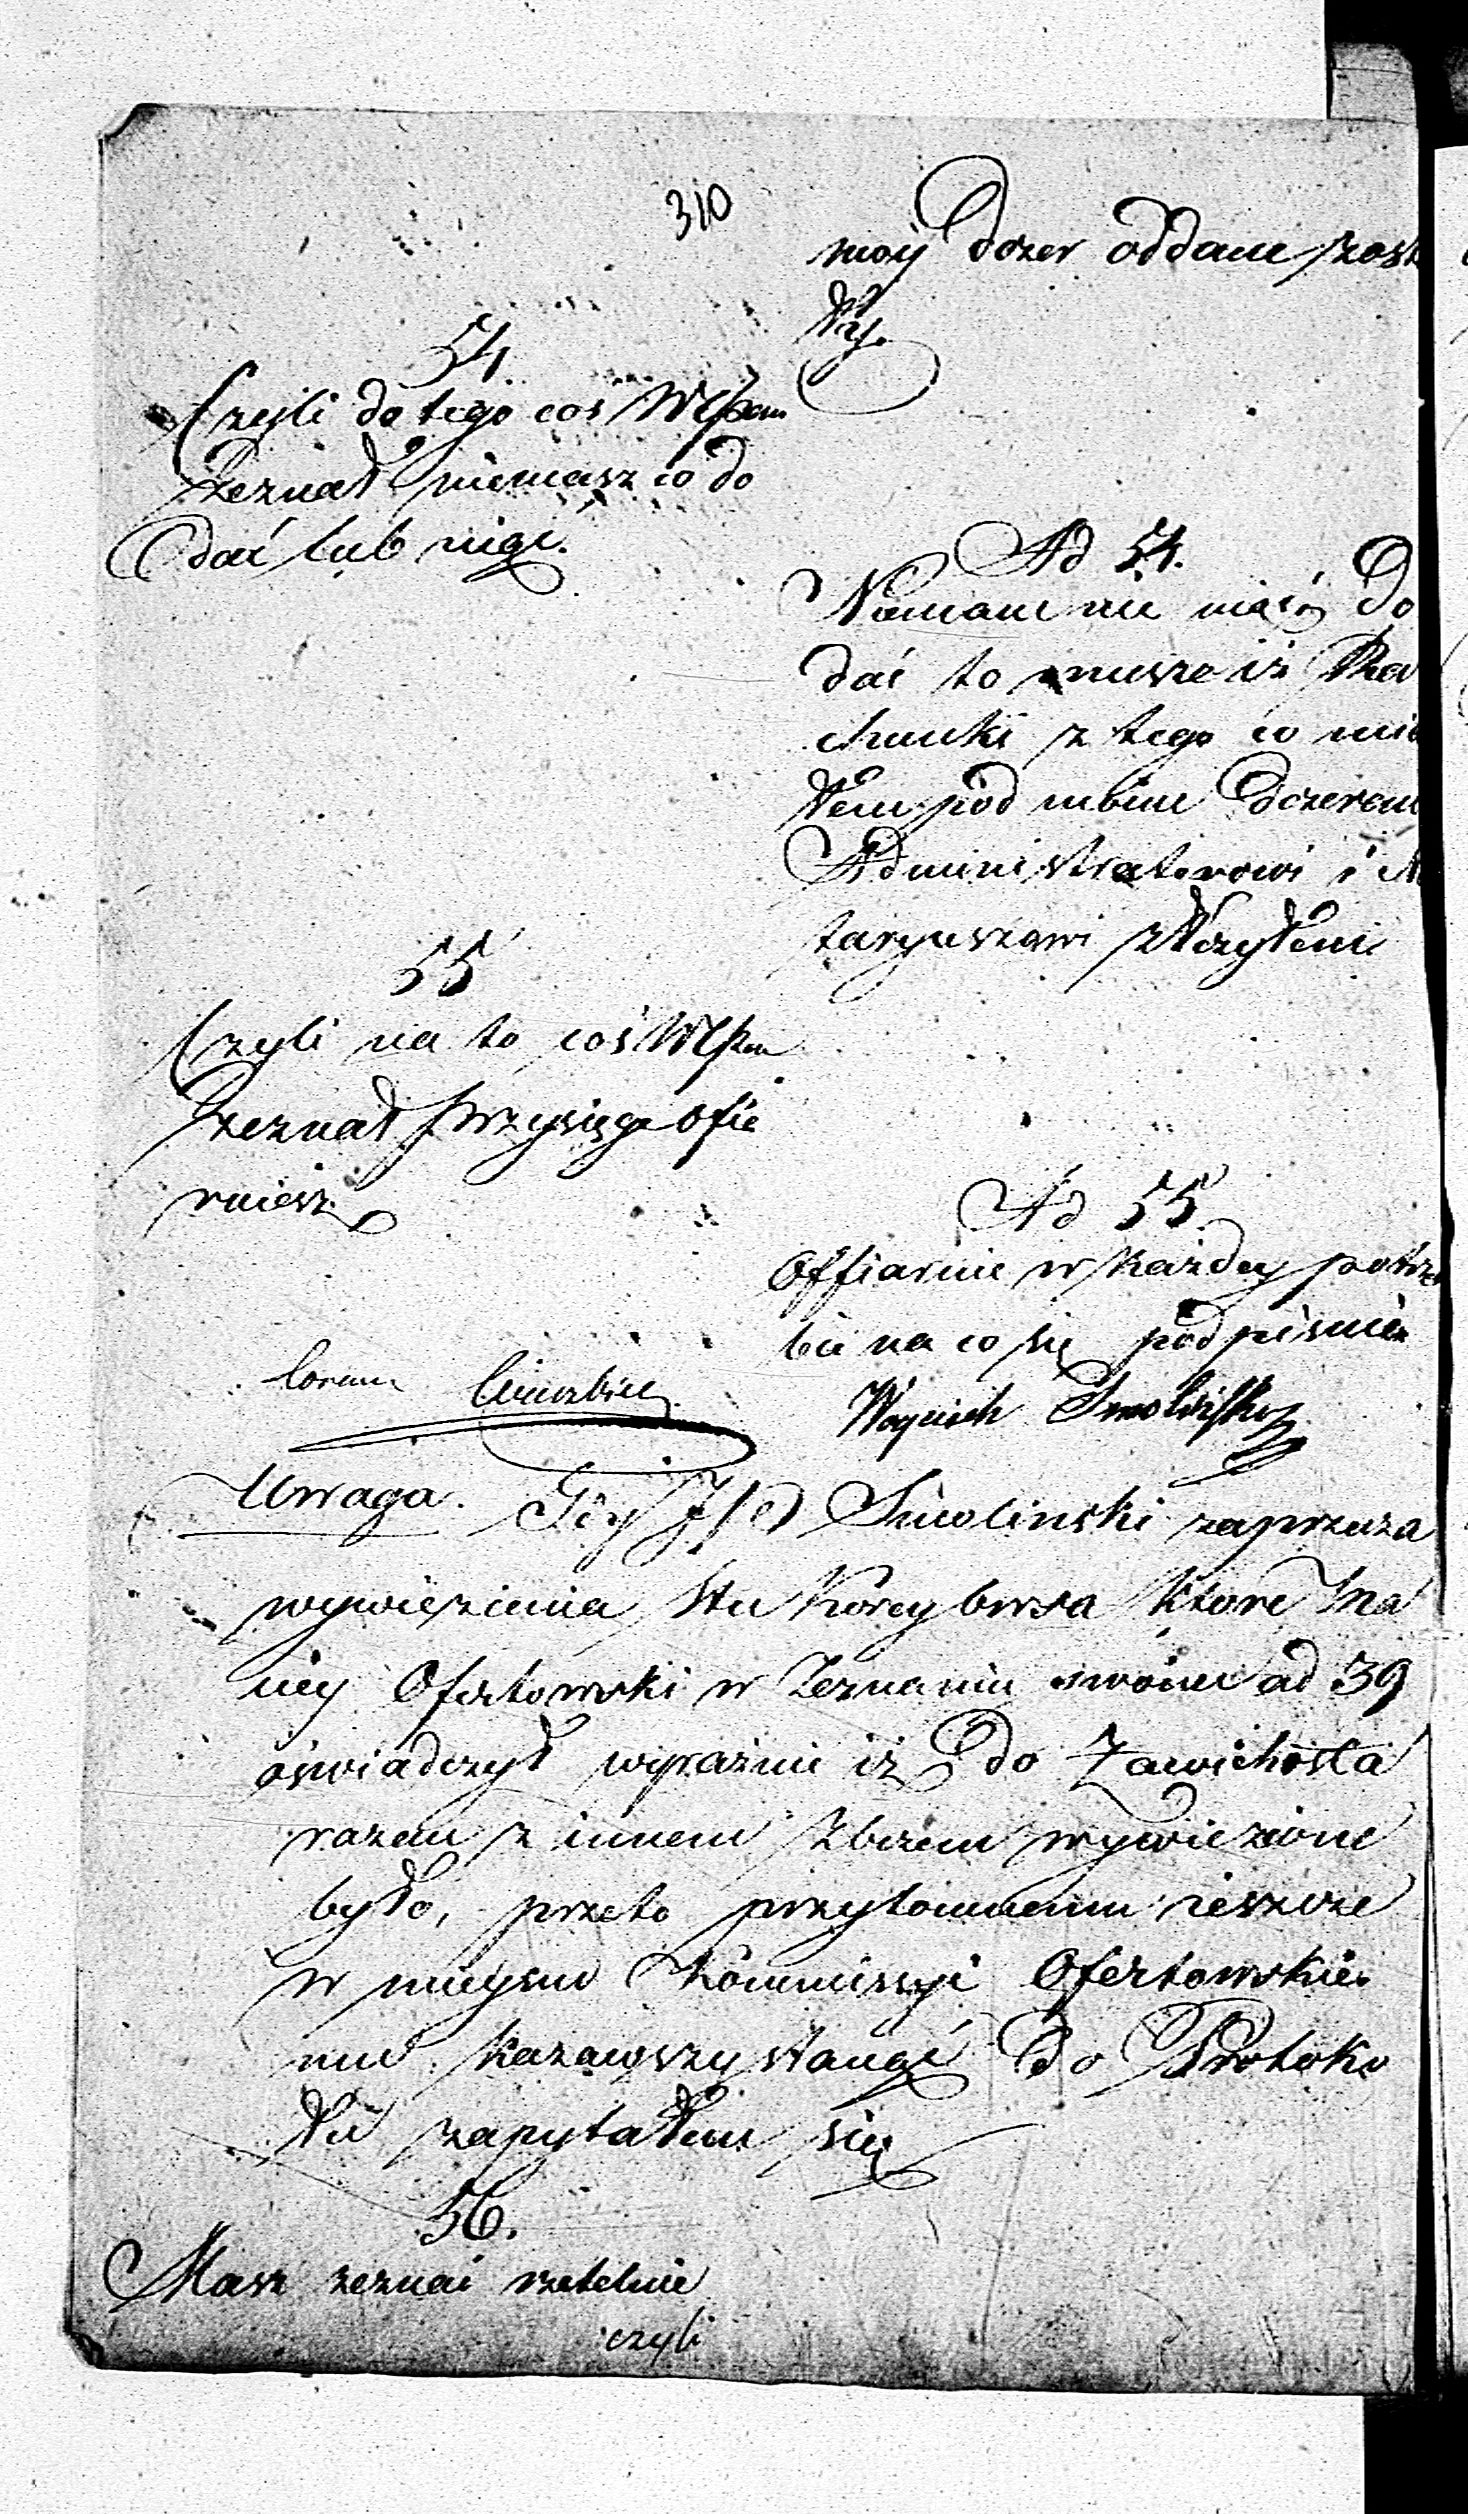 310
moy dozer oddane zost
ły.
54.
Czyli do tego coś WPan
Zeznał niemasz co do
dać lub uiąć.
Ad 54.
Niemam nic uiąć, do
dać to muszę iż Ra
chunki z tego co mia
łem pod moim dozerem
Administratorowi i
taryuszowi złożyłem
55
Czyli na to coś WPan
Zeznał przysięge ofie
ruiesz
Ad 55.
Offiaruie w każdey potrze
bie na co się podpisuie
Coram
Woyciech Smolinski
Uwaga. Gdy JP Smolinski zaprzecza
wywiezienia stu korcy owsa które
Ofertowski w Zeznaniu swoim ad 39
oświadczył wyraźnie iż do Zawichosta
razem z innem zbożem wywiezione
było, przeto przytomnemu ieszcze
w mieyscu Kommissyi Ofertowskie
mu kazawszy stanąć do Protoko
łu zapytałem się
56.
Masz zeznać rzetelnie
czyli